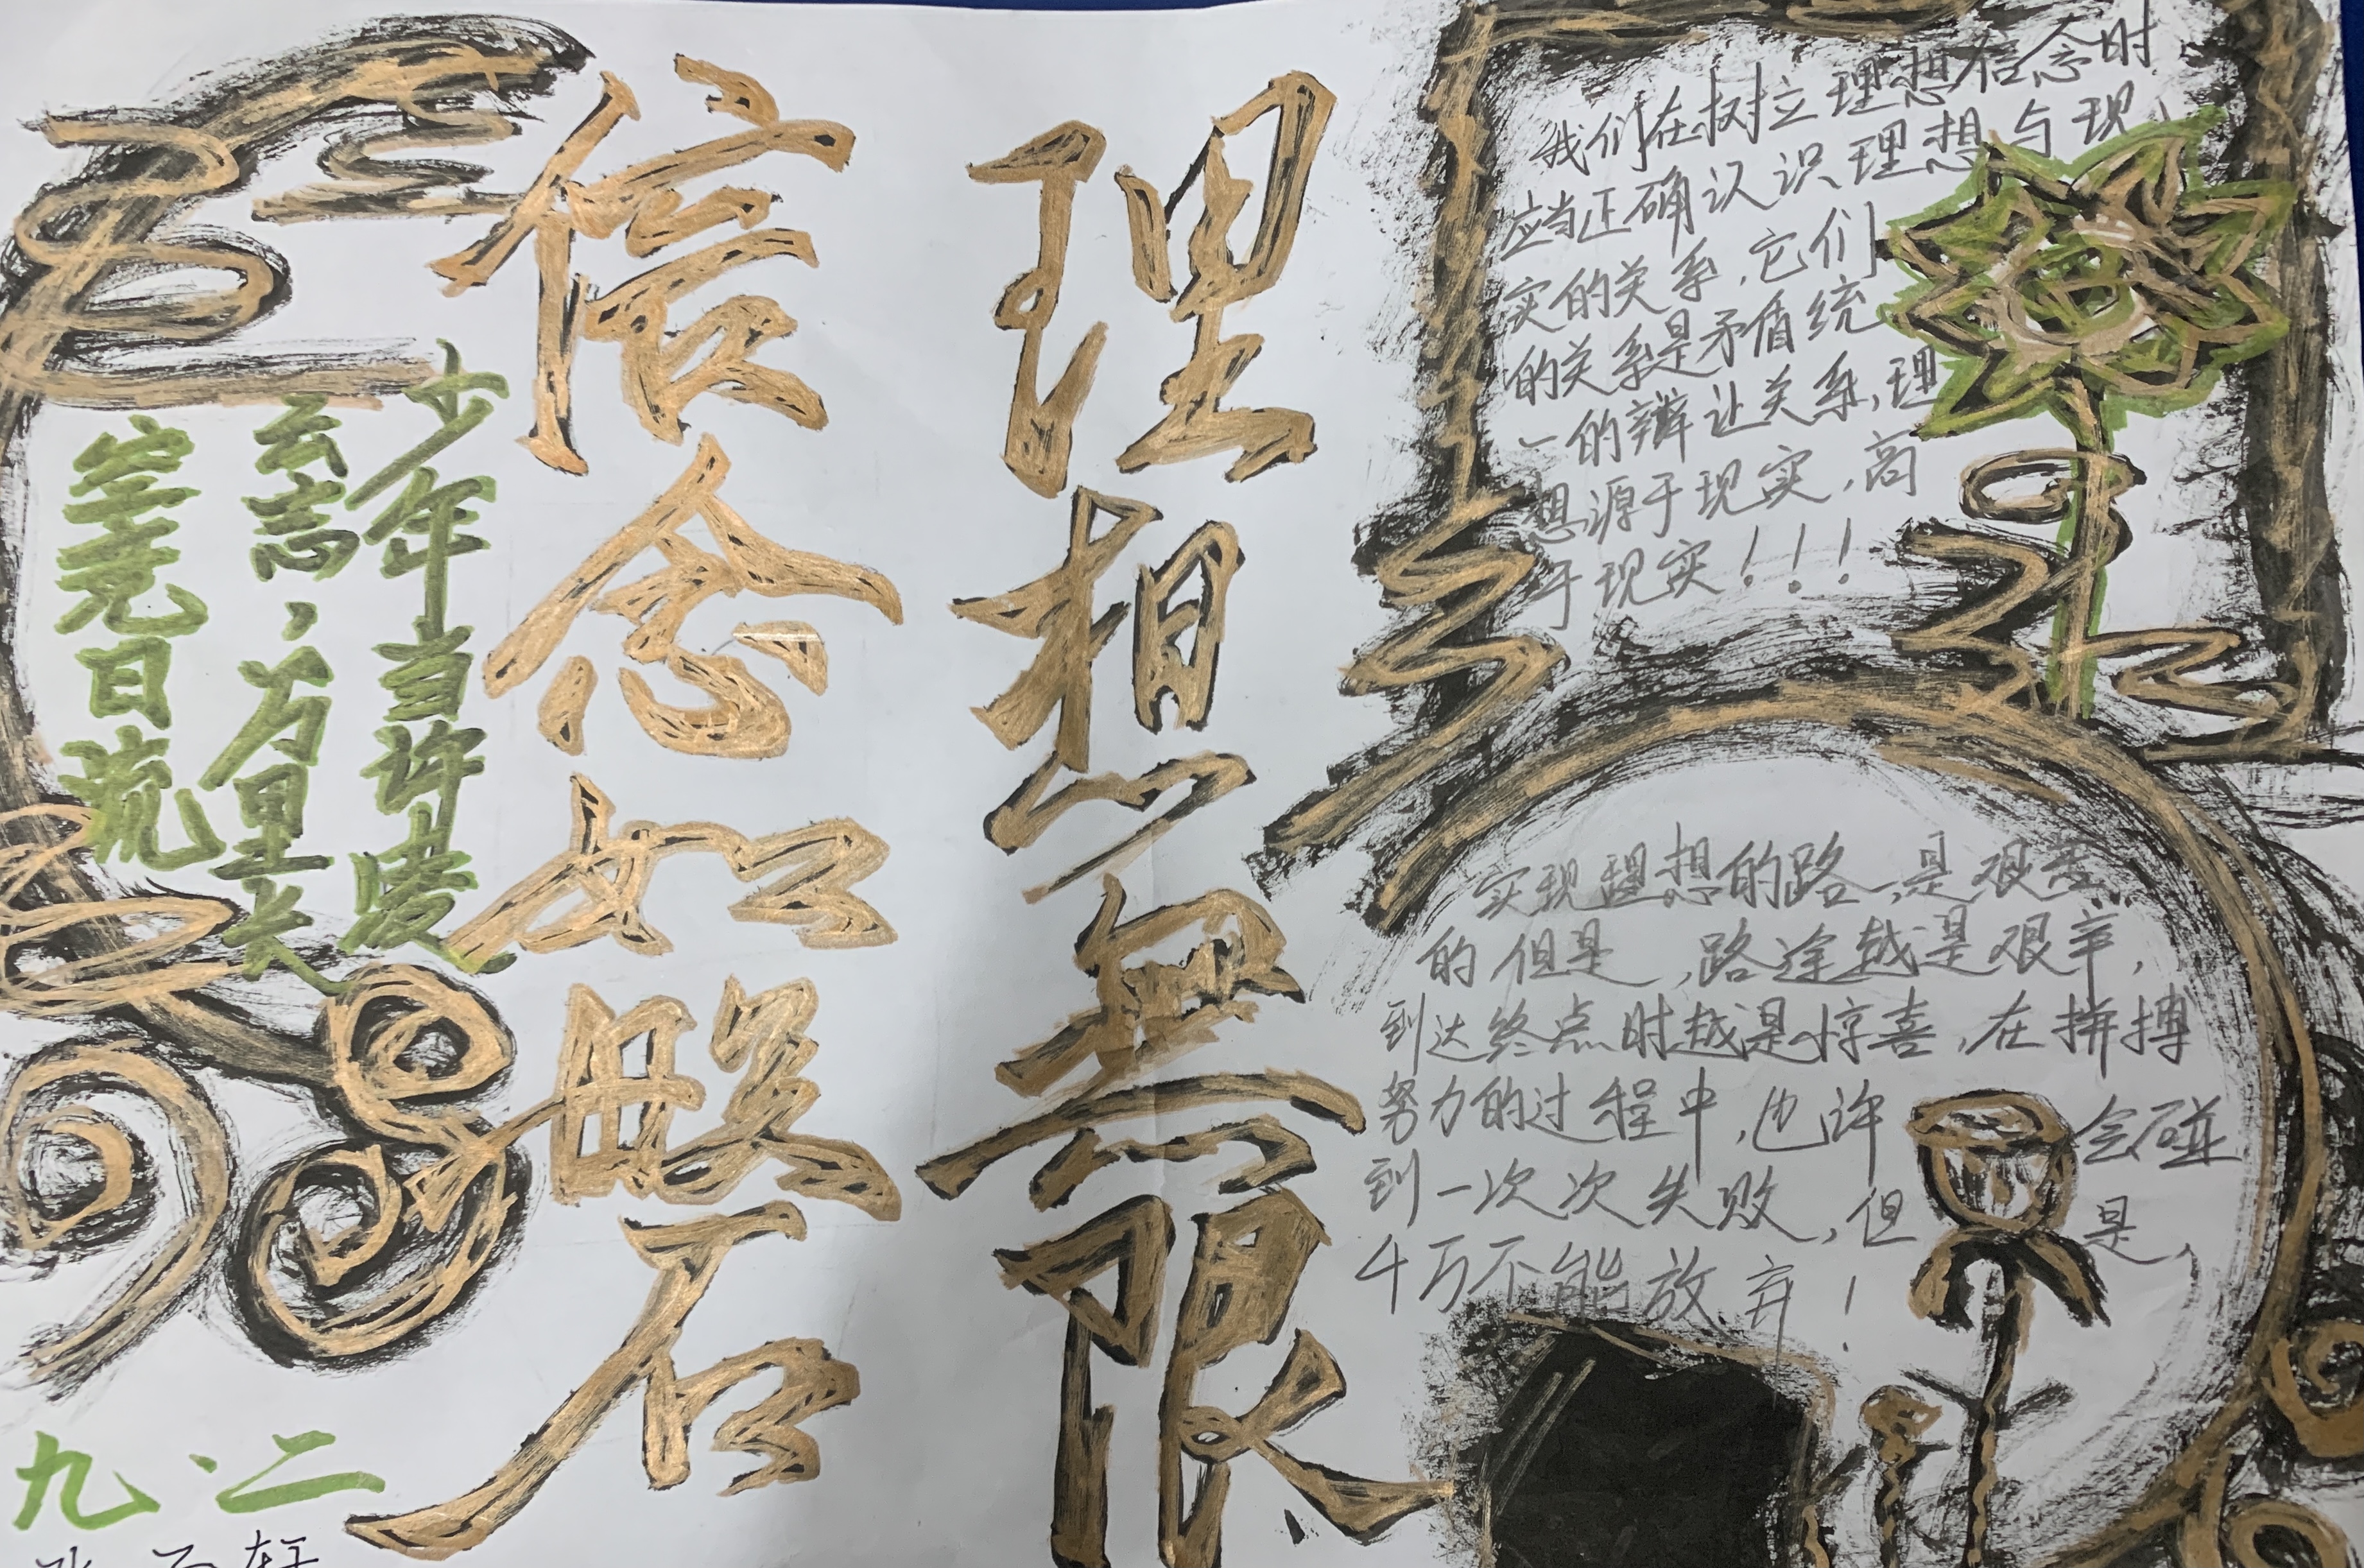 理想無限
信念如磐石
我们在树立理想信念时
应当正确认识理想与现
实的关系，它们
的关系是矛盾统
一的辩让关系，理
想源于现实，高
于现实！！！
实现理想的路，是艰苦
的但是，路途越是艰辛，
到达终点时越是惊喜，在拼搏
努力的过程中，也许会碰
到一次次失败，但是，
千万不能放弃！
少年当许凌
云志，万里长
空竞日流
九、二